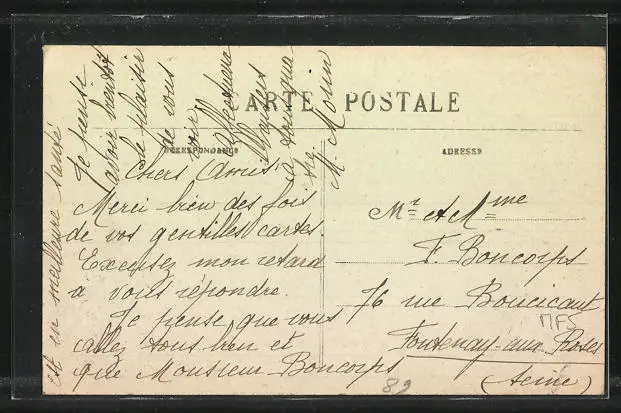 CARTE POSTALE
CORRESPONDANCE
ADRESSE
Chers Amis
Merci bien des fois
de vos gentilles cartes.
Excusez mon retard
à vous répondre.
Je pense que vous
allez tous bien et
que Monsieur Boncorps
est en meilleure santé
Je pense
avoir bientôt
le plaisir
de vous
voir
Affectueux
Baisers
à tous
M. Morin
Mr et Mme
F. Boncorps
76 rue Boucicaut
Fontenay-aux-Roses
(Seine)
MF5
89